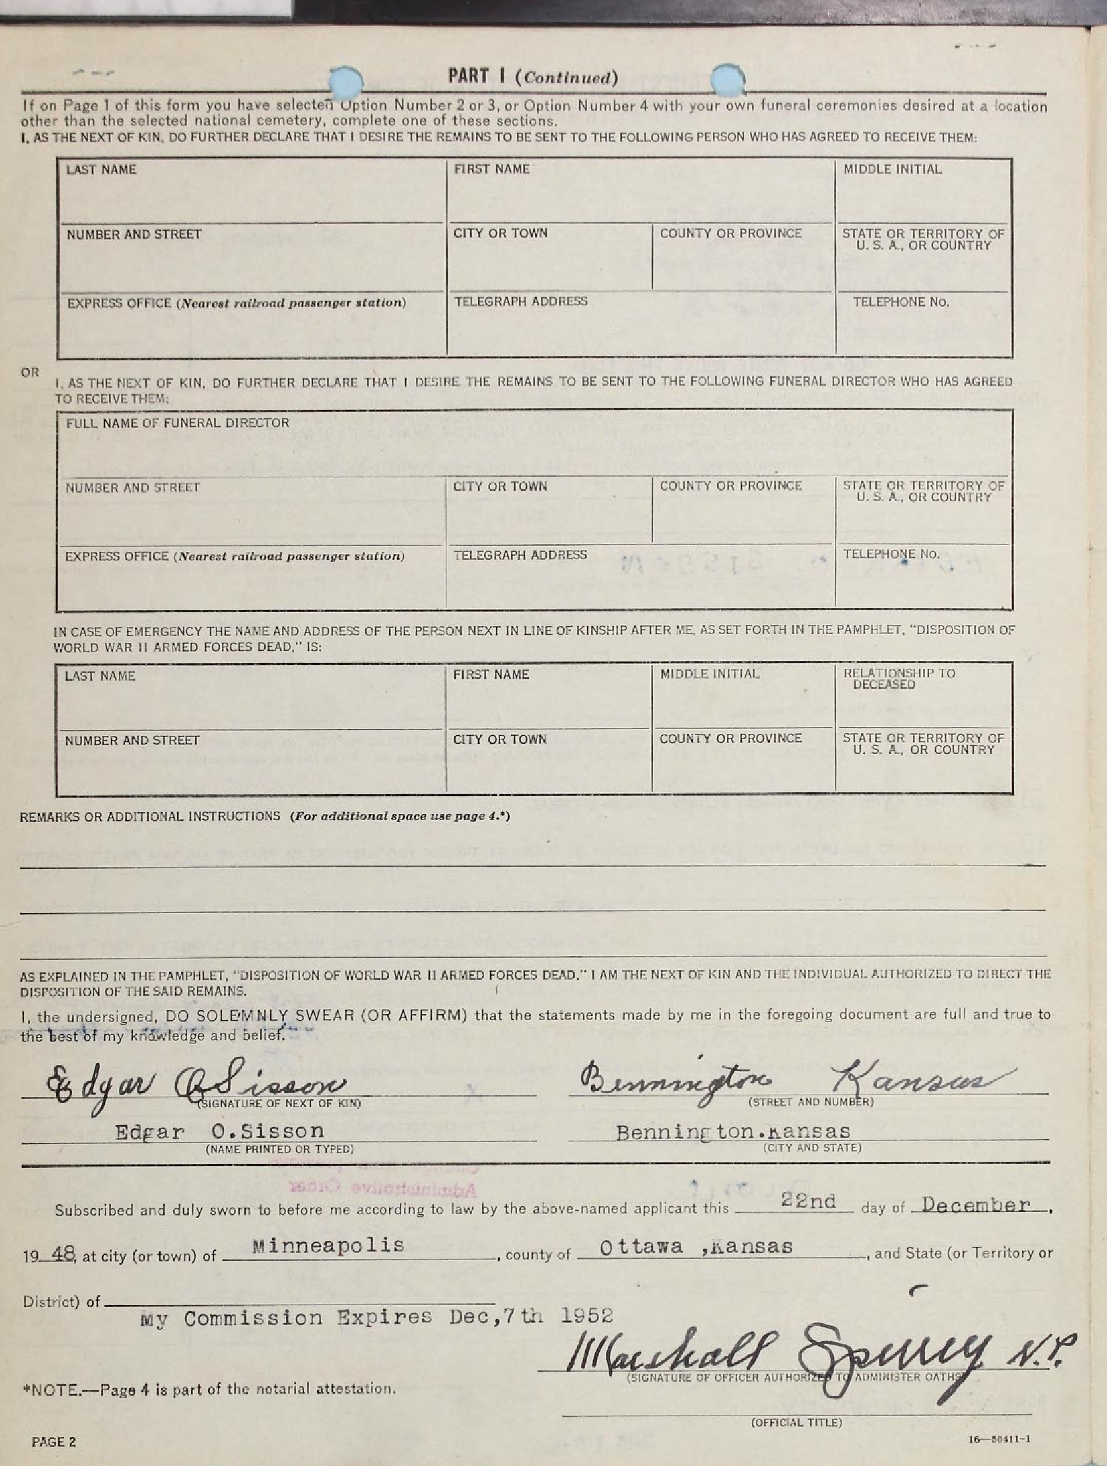 PART I (Continued)
If on Page 1 of this form you have selected Option Number 2 or 3, or Option Number 4 with your own funeral ceremonies desired at a location
other than the selected national cemetery, complete one of these sections.
I, AS THE NEXT OF KIN, DO FURTHER DECLARE THAT I DESIRE THE REMAINS TO BE SENT TO THE FOLLOWING PERSON WHO HAS AGREED TO RECEIVE THEM:
LAST NAME FIRST NAME MIDDLE INITIAL
NUMBER AND STREET CITY OR TOWN COUNTY OR PROVINCE STATE OR TERRITORY OF
U. S. A., OR COUNTRY
EXPRESS OFFICE (Nearest railroad passenger station) TELEGRAPH ADDRESS TELEPHONE No.
OR
I, AS THE NEXT OF KIN, DO FURTHER DECLARE THAT I DESIRE THE REMAINS TO BE SENT TO THE FOLLOWING FUNERAL DIRECTOR WHO HAS AGREED
TO RECEIVE THEM:
FULL NAME OF FUNERAL DIRECTOR
NUMBER AND STREET CITY OR TOWN COUNTY OR PROVINCE STATE OR TERRITORY OF
U. S. A., OR COUNTRY
EXPRESS OFFICE (Nearest railroad passenger station) TELEGRAPH ADDRESS TELEPHONE No.
IN CASE OF EMERGENCY THE NAME AND ADDRESS OF THE PERSON NEXT IN LINE OF KINSHIP AFTER ME, AS SET FORTH IN THE PAMPHLET, "DISPOSITION OF
WORLD WAR II ARMED FORCES DEAD," IS:
LAST NAME FIRST NAME MIDDLE INITIAL RELATIONSHIP TO
DECEASED
NUMBER AND STREET CITY OR TOWN COUNTY OR PROVINCE STATE OR TERRITORY OF
U. S. A., OR COUNTRY
REMARKS OR ADDITIONAL INSTRUCTIONS (For additional space use page 4.*)
AS EXPLAINED IN THE PAMPHLET, "DISPOSITION OF WORLD WAR II ARMED FORCES DEAD," I AM THE NEXT OF KIN AND THE INDIVIDUAL AUTHORIZED TO DIRECT THE
DISPOSITION OF THE SAID REMAINS.
I, the undersigned, DO SOLEMNLY SWEAR (OR AFFIRM) that the statements made by me in the foregoing document are full and true to
the best of my knowledge and belief.
Edgar O Sisson Bennington Kansas
(SIGNATURE OF NEXT OF KIN) (STREET AND NUMBER)
Edgar O.Sisson Bennington.Kansas
(NAME PRINTED OR TYPED) (CITY AND STATE)
Subscribed and duly sworn to before me according to law by the above-named applicant this 22nd day of December,
19 48, at city (or town) of Minneapolis, county of Ottawa ,Kansas, and State (or Territory or
District) of
My Commission Expires Dec,7th 1952
Marshall Spurry N.P.
(SIGNATURE OF OFFICER AUTHORIZED TO ADMINISTER OATHS)
*NOTE.—Page 4 is part of the notarial attestation.
(OFFICIAL TITLE)
PAGE 2 16—50411-1